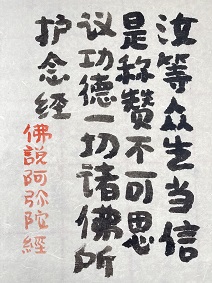 汝等众生当信
是称赞不可思
议功德一切诸佛所
护念经
佛說阿弥陀經